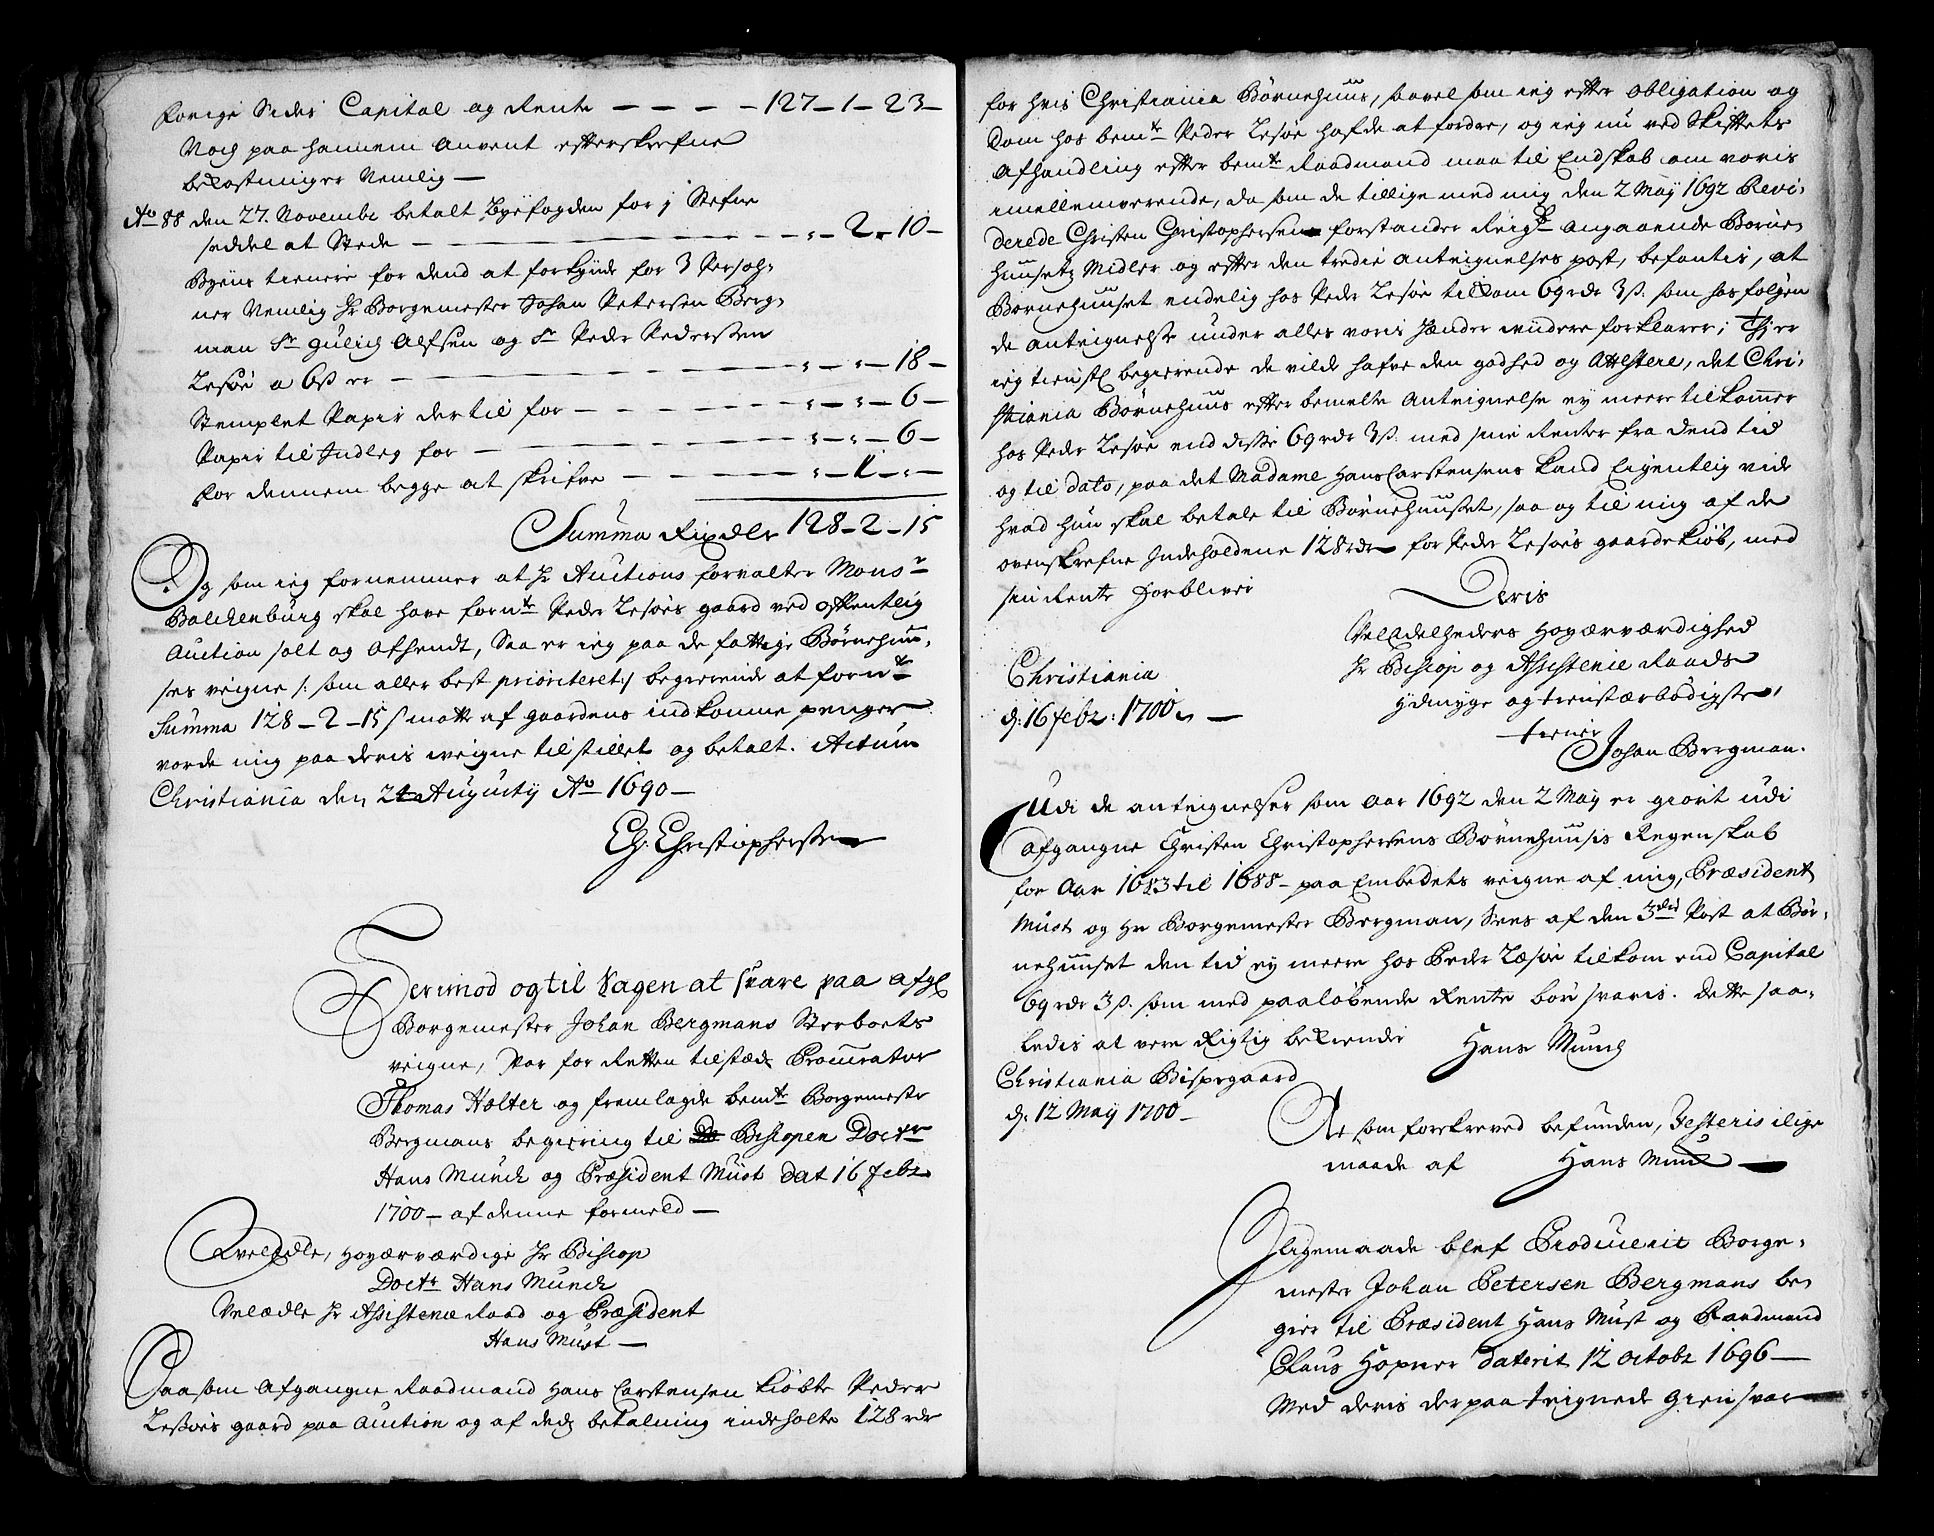 Forige Sides Capital og Rente — — — — 127 – 1 – 23 –
Noch paa hannem anvent efterskrefne
bekostninger Nemlig —
Ao 88 den 27. Novembr betalt Byefogden for j Stefne
seddel at Stede — — — „ – 2 – 10 –
Byens tienere for dend at forkynde for 3 Persoh-
ner Nemlig Hr Borgemester Johan Petersen Berg-
man Sr Gulich Alfsen og Sr Peder Pedersen
Lesøe a 6 ß er — — — „ – „ – 18 –
Stemplet Papir dertil for — — — „ – „ – 6 –
Papir til Indleg for — — — „ – „ – 6 –
For dennem begge at skrifve — — — „ – 1 – „ –
Summa Rixdlr 128 – 2 – 15
Og som ieg fornemmer at Hr Auctions forvalter Monsr
Balchenburg skal have fornte Peder Lesøes gaard ved offentlig
Auction solt og Afhendt, Saa er ieg paa de fattige Børnehuu-
ses veigne /: som aller best prioriteret :/ begierende at fornte
Summa 128 – 2 – 15 ß motte af gaardens indkomne penger
vorde mig paa deris veigne tilstillet og betalt. Actum
Christiania den 21 Augusty Ao 1690 –
Ch: Christophersen
Derimod og til Sagen at svare paa afgl
Borgemester Johan Bergmans Sterboets
veigne, Var for Retten tilstæde Procurator
Thomas Holter og fremlagde bemte Borgemester
Bergmans begiering til Bisiopen Doctr
Hans Munch og Præsident Must dat 16 febr
1700 – af denne formeld –
Velædle, Høyærværdige Hr Bisiop
Doctr Hans Munch
Velædle Hr Assistence Raad og Præsident
Hans Must —
Saasom Afgangne Raadmand Hans Carstensen kiøbte Peder
Lessøes gaard paa Auction og af des betalning indeholte 128 rdr
for hvis Christiania Børnehuus, saavel som ieg efter obligation og
Dom hos bemte Peder Lesøe hafde at fordre, og ieg nu ved Skiftets
Afhandling efter bemte Raadmand maa til Endskab om voris
imellemverende, da som de tillige med mig den 2 May 1692 Revi-
derede Christen Christophersens forstander Reigsk: angaaende Børne-
huusetz Midler og efter den tredie anteignelses post, befantis, at
Børnehuuset endelig hos Peder Lesøe tilkom 69 rdr 3 ß. som hosfølgen
de anteignelse under alles voris Hænder widere forklarer; Thj er
ieg tienstl begierende de vilde hafve den godhed og Attestere, det Chri-
stiania Børnehuus efter bemelte Anteignelse ey meere tilkommer
hos Peder Lesøe end disse 69 rdr 3 ß. med sine Renter fra dend tid
og til dato, paa det Madame Hans Carstensens kand Eigentlig vide
hvad hun skal betale til Børnehuuset, saa og til mig af de
ovenskrefne Indeholdene 128 rdr for Peder Lesøes gaardekiøb, med
sin Rente Forbliver
Deris
VelÆdelheders Høyærværdighed
Hr Bisiop og Assistence Raads
ydmyge og tienstærbødigste,
tiener
Christiania
d: 16 febr: 1700 „ —
Johan Bergman.
Udi de anteignelser som Aar 1692 den 2 May er giort udi
afgangne Christen Christophersens Børnehuusis Regenskab
for Aar 1683 til 1688 – paa Embedets veigne af mig, Præsident
Must og Hr Borgemester Bergman, Sees af den 3die Post at Bør-
nehuuset den tid ey meere hos Peder Læsøe tilkom end Capital
69 rdr 3 ß. som med paaløbende Rente bør svaris. dette saa-
ledis at vere Rigtig bekiender Hans Munch
Christiania Bispegaard
d: 12 May 1700 –
At som forskreved befunden, Testeris i lige
maade af Hans Must —
I ligemaade blef Producerit Borge-
mester Johan Petersen Bergmans be-
gier til Præsident Hans Must og Raadmand
Claus Høpner daterit 12 octobr 1696 —
Med deris derpaa teignede Giensvar